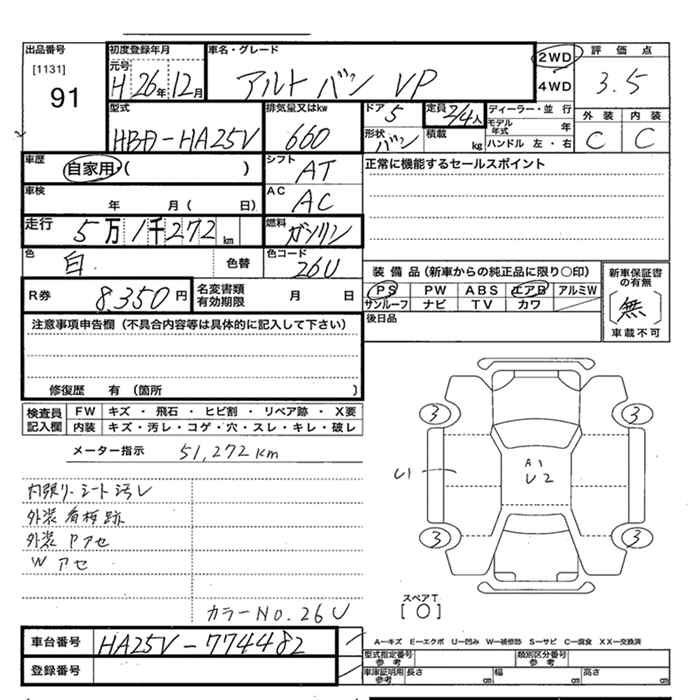 出品番号
[1131]
91
初度登録年月
元号
H 26年 12月
車名・グレード
アルト バン VP
2WD
4WD
評価点
3.5
型式
HBD-HA25V
排気量又はkw
660
ドア
5
定員
2/4人
ディーラー・並行
モデル年式 年
ハンドル 左・右
外装
内装
C
C
形状
バン
積載
kg
車歴
自家用・( )
シフト
AT
正常に機能するセールスポイント
車検
年 月( 日)
AC
AC
走行
5万1千272km
燃料
ガソリン
色
白
色替
色コード
26U
装備品(新車からの純正品に限り○印)
PS PW ABS エアB アルミW
サンルーフ ナビ TV カワ
新車保証書の有無
[無]
車載不可
R券
8,350円
名変書類有効期限
月 日
後日品
注意事項申告欄(不具合内容等は具体的に記入して下さい)
修復歴 有(箇所 )
検査員記入欄
FW キズ・飛石・ヒビ割・リペア跡・X要
内装 キズ・汚レ・コゲ・穴・スレ・キレ・破レ
メーター指示 51,272km
内張り・シート汚レ
外装 看板跡
外装 Pアセ
Wアセ
カラーNO.26U
3
3
U1
A1
U2
3
3
スペアT
[0]
車台番号
HA25V-774482
登録番号
A―キズ E―エクボ U―凹み W―補修跡 S―サビ C―腐食 XX―交換済
型式指定番号
参考
類別区分番号
参考
車庫証明用
参考
長さ cm
幅 cm
高さ cm